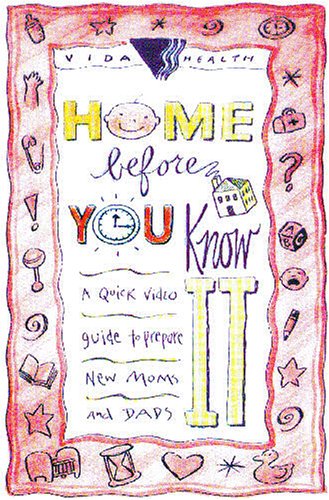 VIDA HEALTH
HOME
before
YOU Know
IT
A Quick Video
guide to prepare
New Moms
and DADS